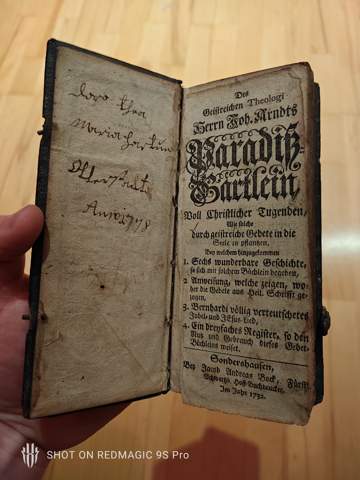 Doro thea
Maria
Anno 1778
Des
Geistreichen Theologi
Herrn Joh. Arndts
Paradiß-
Gärtlein,
Voll Christlicher Tugenden,
Wie solche
durch geistreiche Gebete in die
Seele zu pflantzen,
Bey welchem hinzugekommen
1. Sechs wunderbare Geschichte,
so sich mit solchem Büchlein begeben,
2. Anweisung, welche zeigen, wo-
her die Gebete aus Heil. Schrifft ge-
zogen,
3. Bernhardi völlig verteutschetes
Jubel- und JEsus-Lied,
4. Ein dreyfaches Register, so den
Nutz und Gebrauch dieses Gebet-
Büchleins weiset.
Sondershausen,
Bey Jacob Andreas Bock, Fürstl.
Schwartzb. Hof-Buchdrucker,
Im Jahr 1732.
SHOT ON REDMAGIC 9S Pro